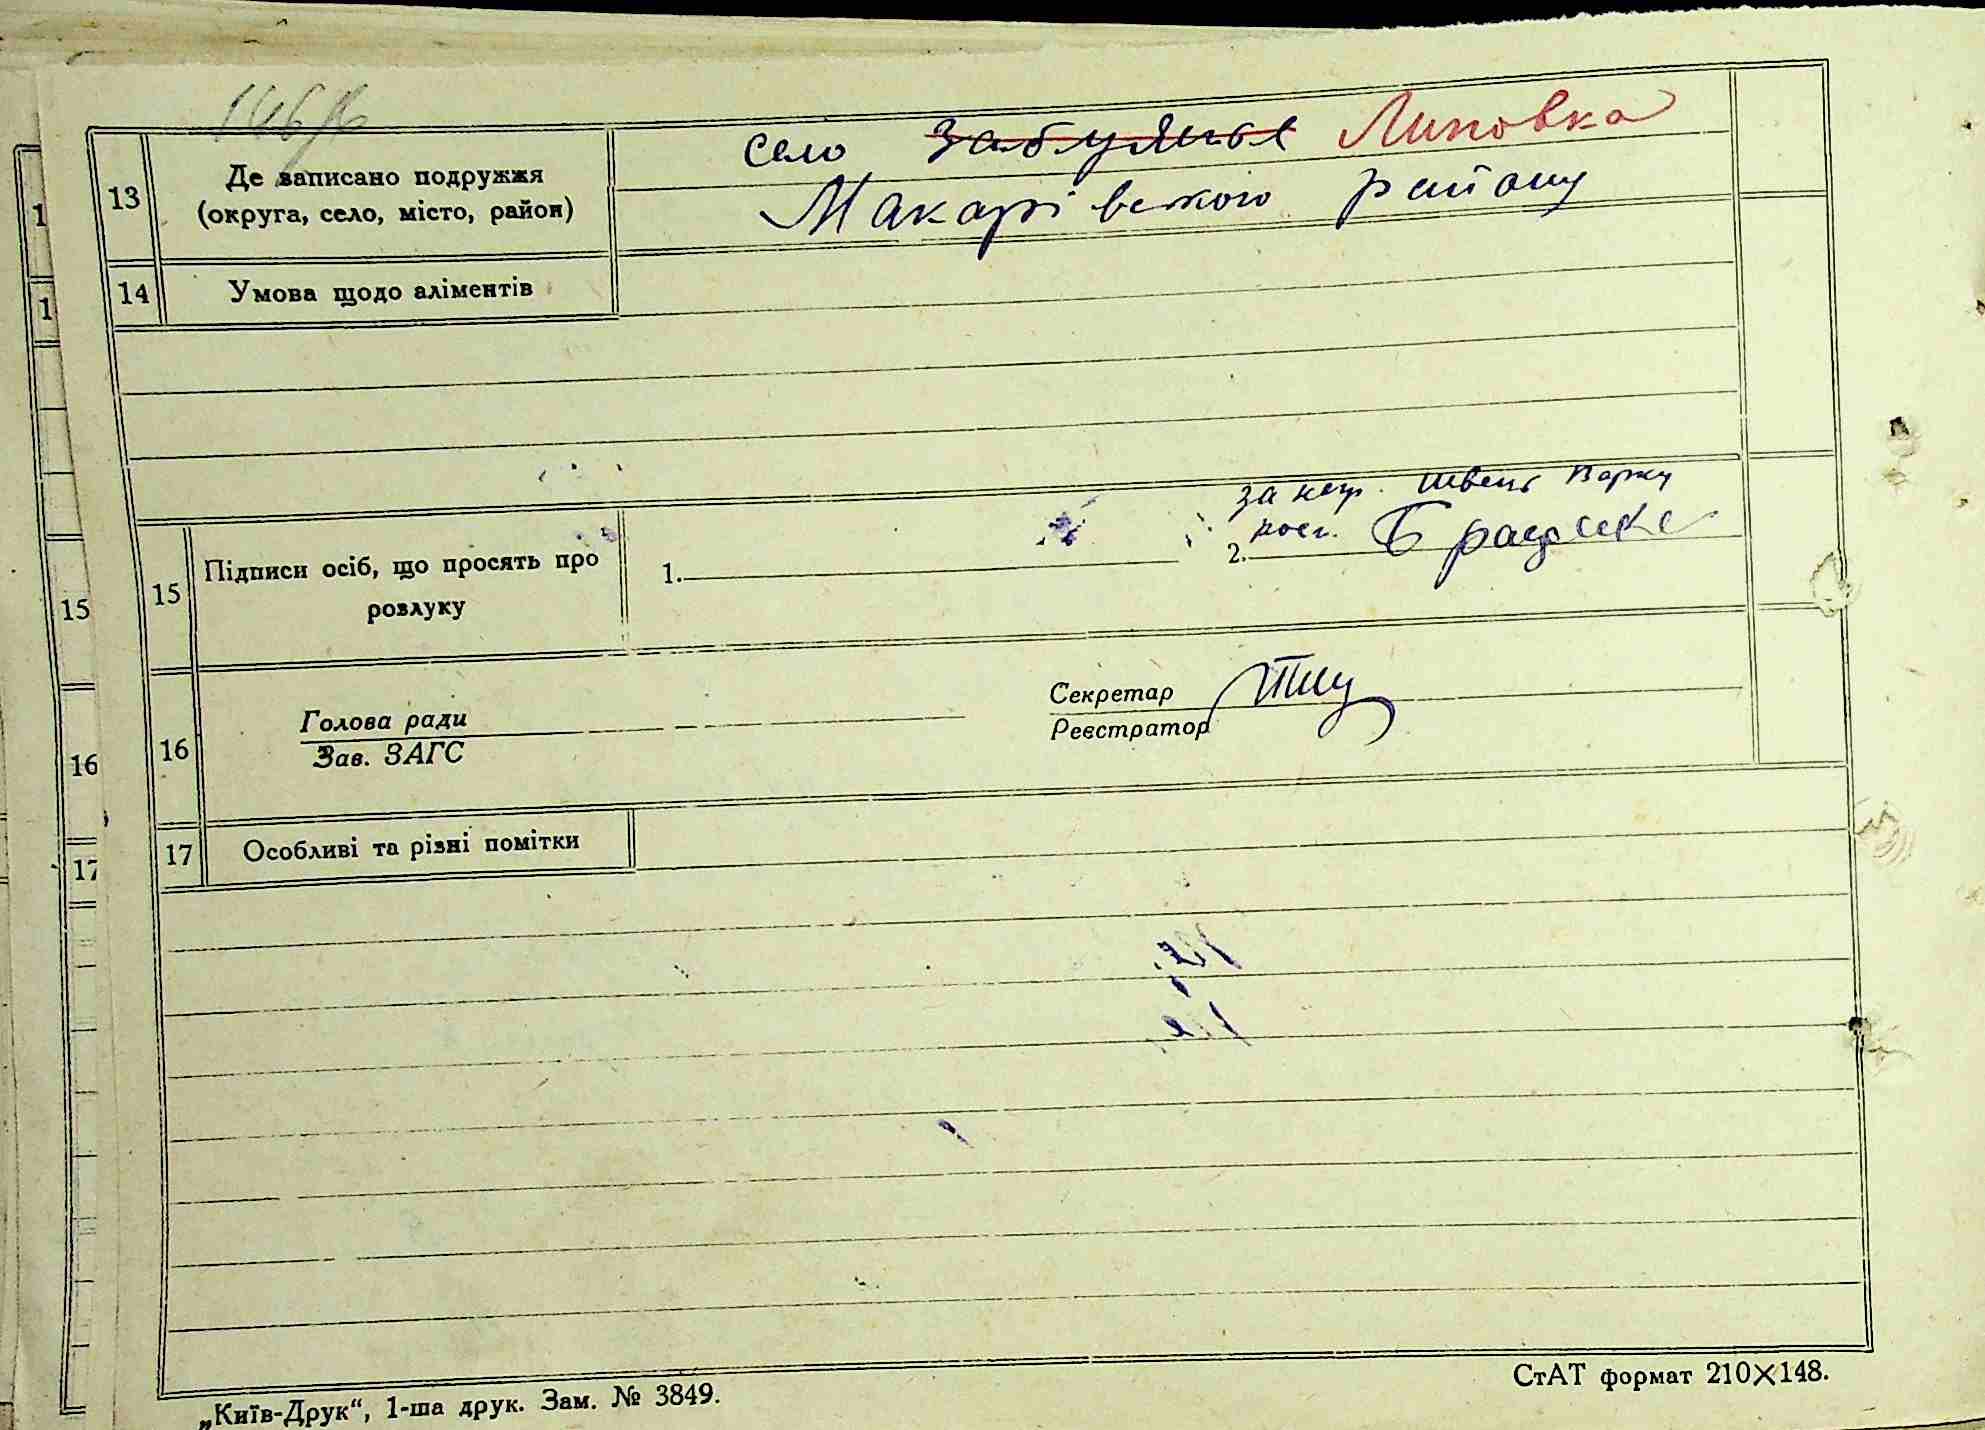 13
Де записано подружжя
(округа, село, місто, район)
село Забуяння Липовка
Макарівського району
14
Умова щодо аліментів
15
Підписи осіб, що просять про
розлуку
1.
за негр. Швець Варку
2.
16
Голова ради
Зав. ЗАГС
Секретар
Реєстратор
17
Особливі та різні помітки
„Київ-Друк“, 1-ша друк. Зам. № 3849.
СтАТ формат 210×148.
1
1
15
16
17